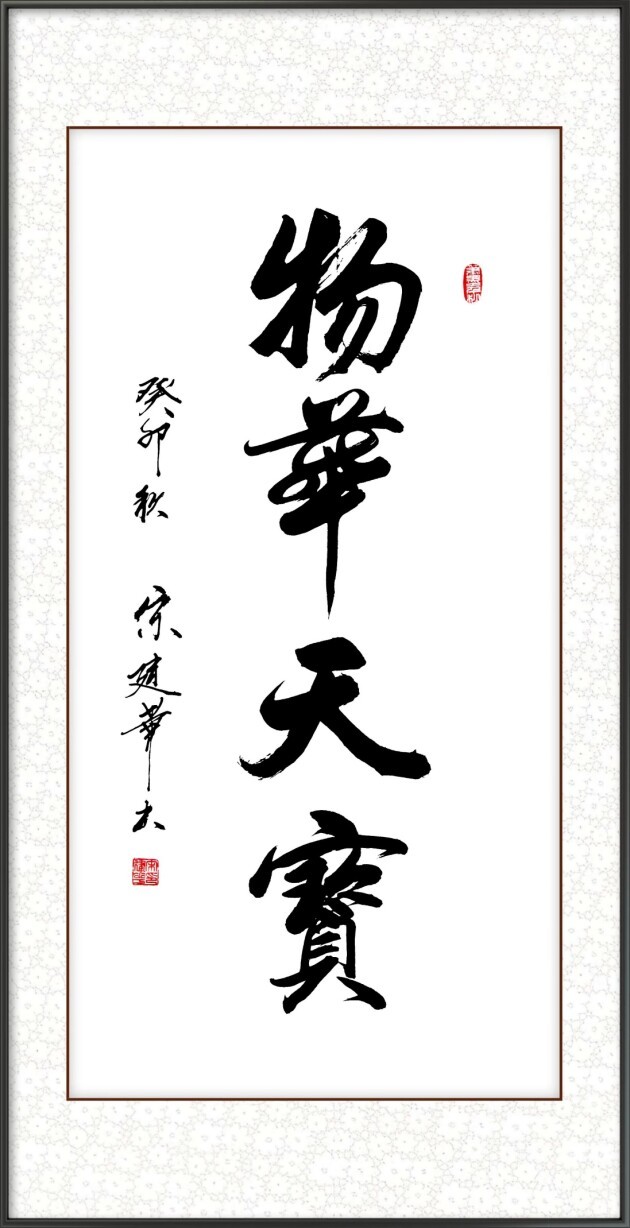 物華天寳
癸卯秋 宗建華书